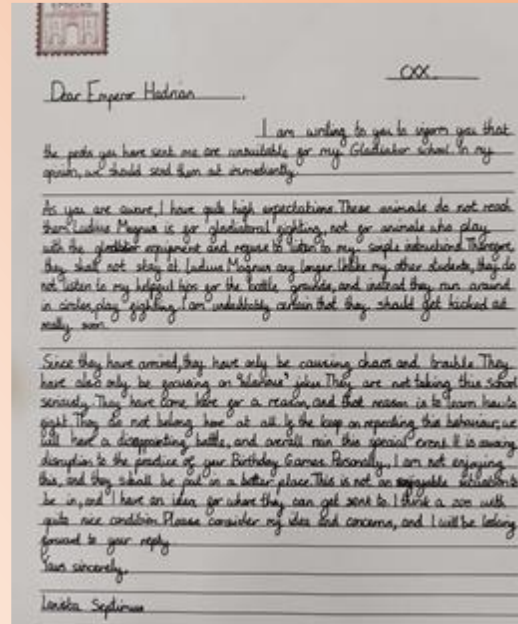 CXX
Dear Emperor Hadrian,
I am writing to you to inform you that
the pests you have sent me are unsuitable for my Gladiator school. In my
opinion, we should send them out immediately.
As you are aware, I have quite high expectations. These animals do not reach
them. Ludus Magnus is for gladiatorial fighting, not for animals who play
with the gladiator equipment and refuse to listen to my simple instructions. Therefore,
they shall not stay at Ludus Magnus any longer. Unlike my other students, they do
not listen to my helpful tips for the battle grounds, and instead they run around
in circles, play fighting. I am undoubtably certain that they should get kicked out
really soon.
Since they have arrived, they have only be causing chaos and trouble. They
have also only be focusing on "hilarious" jokes. They are not taking this school
seriously. They have come here for a reason, and that reason is to learn how to
fight. They do not belong here at all. If the keep on repeating this behaviour, we
will have a disappointing battle, and overall ruin this special event. It is causing
disruption to the practice of your Birthday Games. Personally, I am not enjoying
this, and they shall be put in a better place. This is not an enjoyable situation to
be in, and I have an idea for where they can get sent to. I think a zoo with
quite nice condition. Please consider my idea and concerns, and I will be looking
forward to your reply.
Yours sincerely,
Septimus